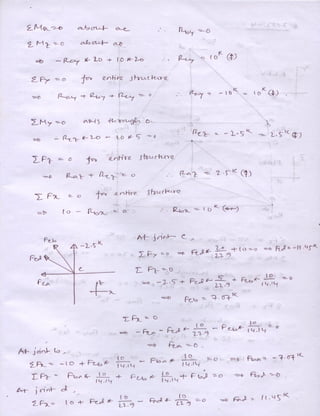 ΣMx = 0 about ac ∴ Rby = 0
ΣMz = 0 about ao
⇒ - Rcy * 20 + 10 * 20 ∴ Rcy = 10^K (↑)
ΣFy = 0 for entire structure
⇒ Ray + Rby + Rcy = 0 ∴ Ray = -10^K = 10^K (↓)
ΣMy = 0 axis through o.
⇒ - Rcz * 20 - 10 * 5 = 0 Rcz = -2.5^K = 2.5^K
ΣFz = 0 for entire structure
⇒ Raz + Rcz = 0 ∴ Raz = 2.5^K
ΣFx = 0 for entire structure
⇒ 10 - Rbx = 0 ∴ Rbx = 10^K
At joint c,
ΣFy = 0 ⇒ Fcd * 20/22.9 + 10 = 0 ⇒ Fcd = -11.45^K
Fcb
-2.5^K
Fcd
c
Fca
ΣFz = 0
⇒ -2.5 + Fcd * 5/22.9 + Fcb * 10/14.14 = 0
⇒ Fcb = 7.07^K
ΣFx = 0
⇒ - Fca - Fcd * 10/22.9 - Fcb * 10/14.14 = 0
⇒ Fca = 0
At joint b,
ΣFx = -10 + Fcb * 10/14.14 - Fba * 10/14.14 = 0 ⇒ Fba = -7.07^K
ΣFz = Fba * 10/14.14 + Fcb * 10/14.14 + Fbd = 0 ⇒ Fbd = 0
At joint d,
ΣFx = 10 + Fcd * 10/22.9 - Fad * 10/22.9 = 0 ⇒ Fad = 11.45^K